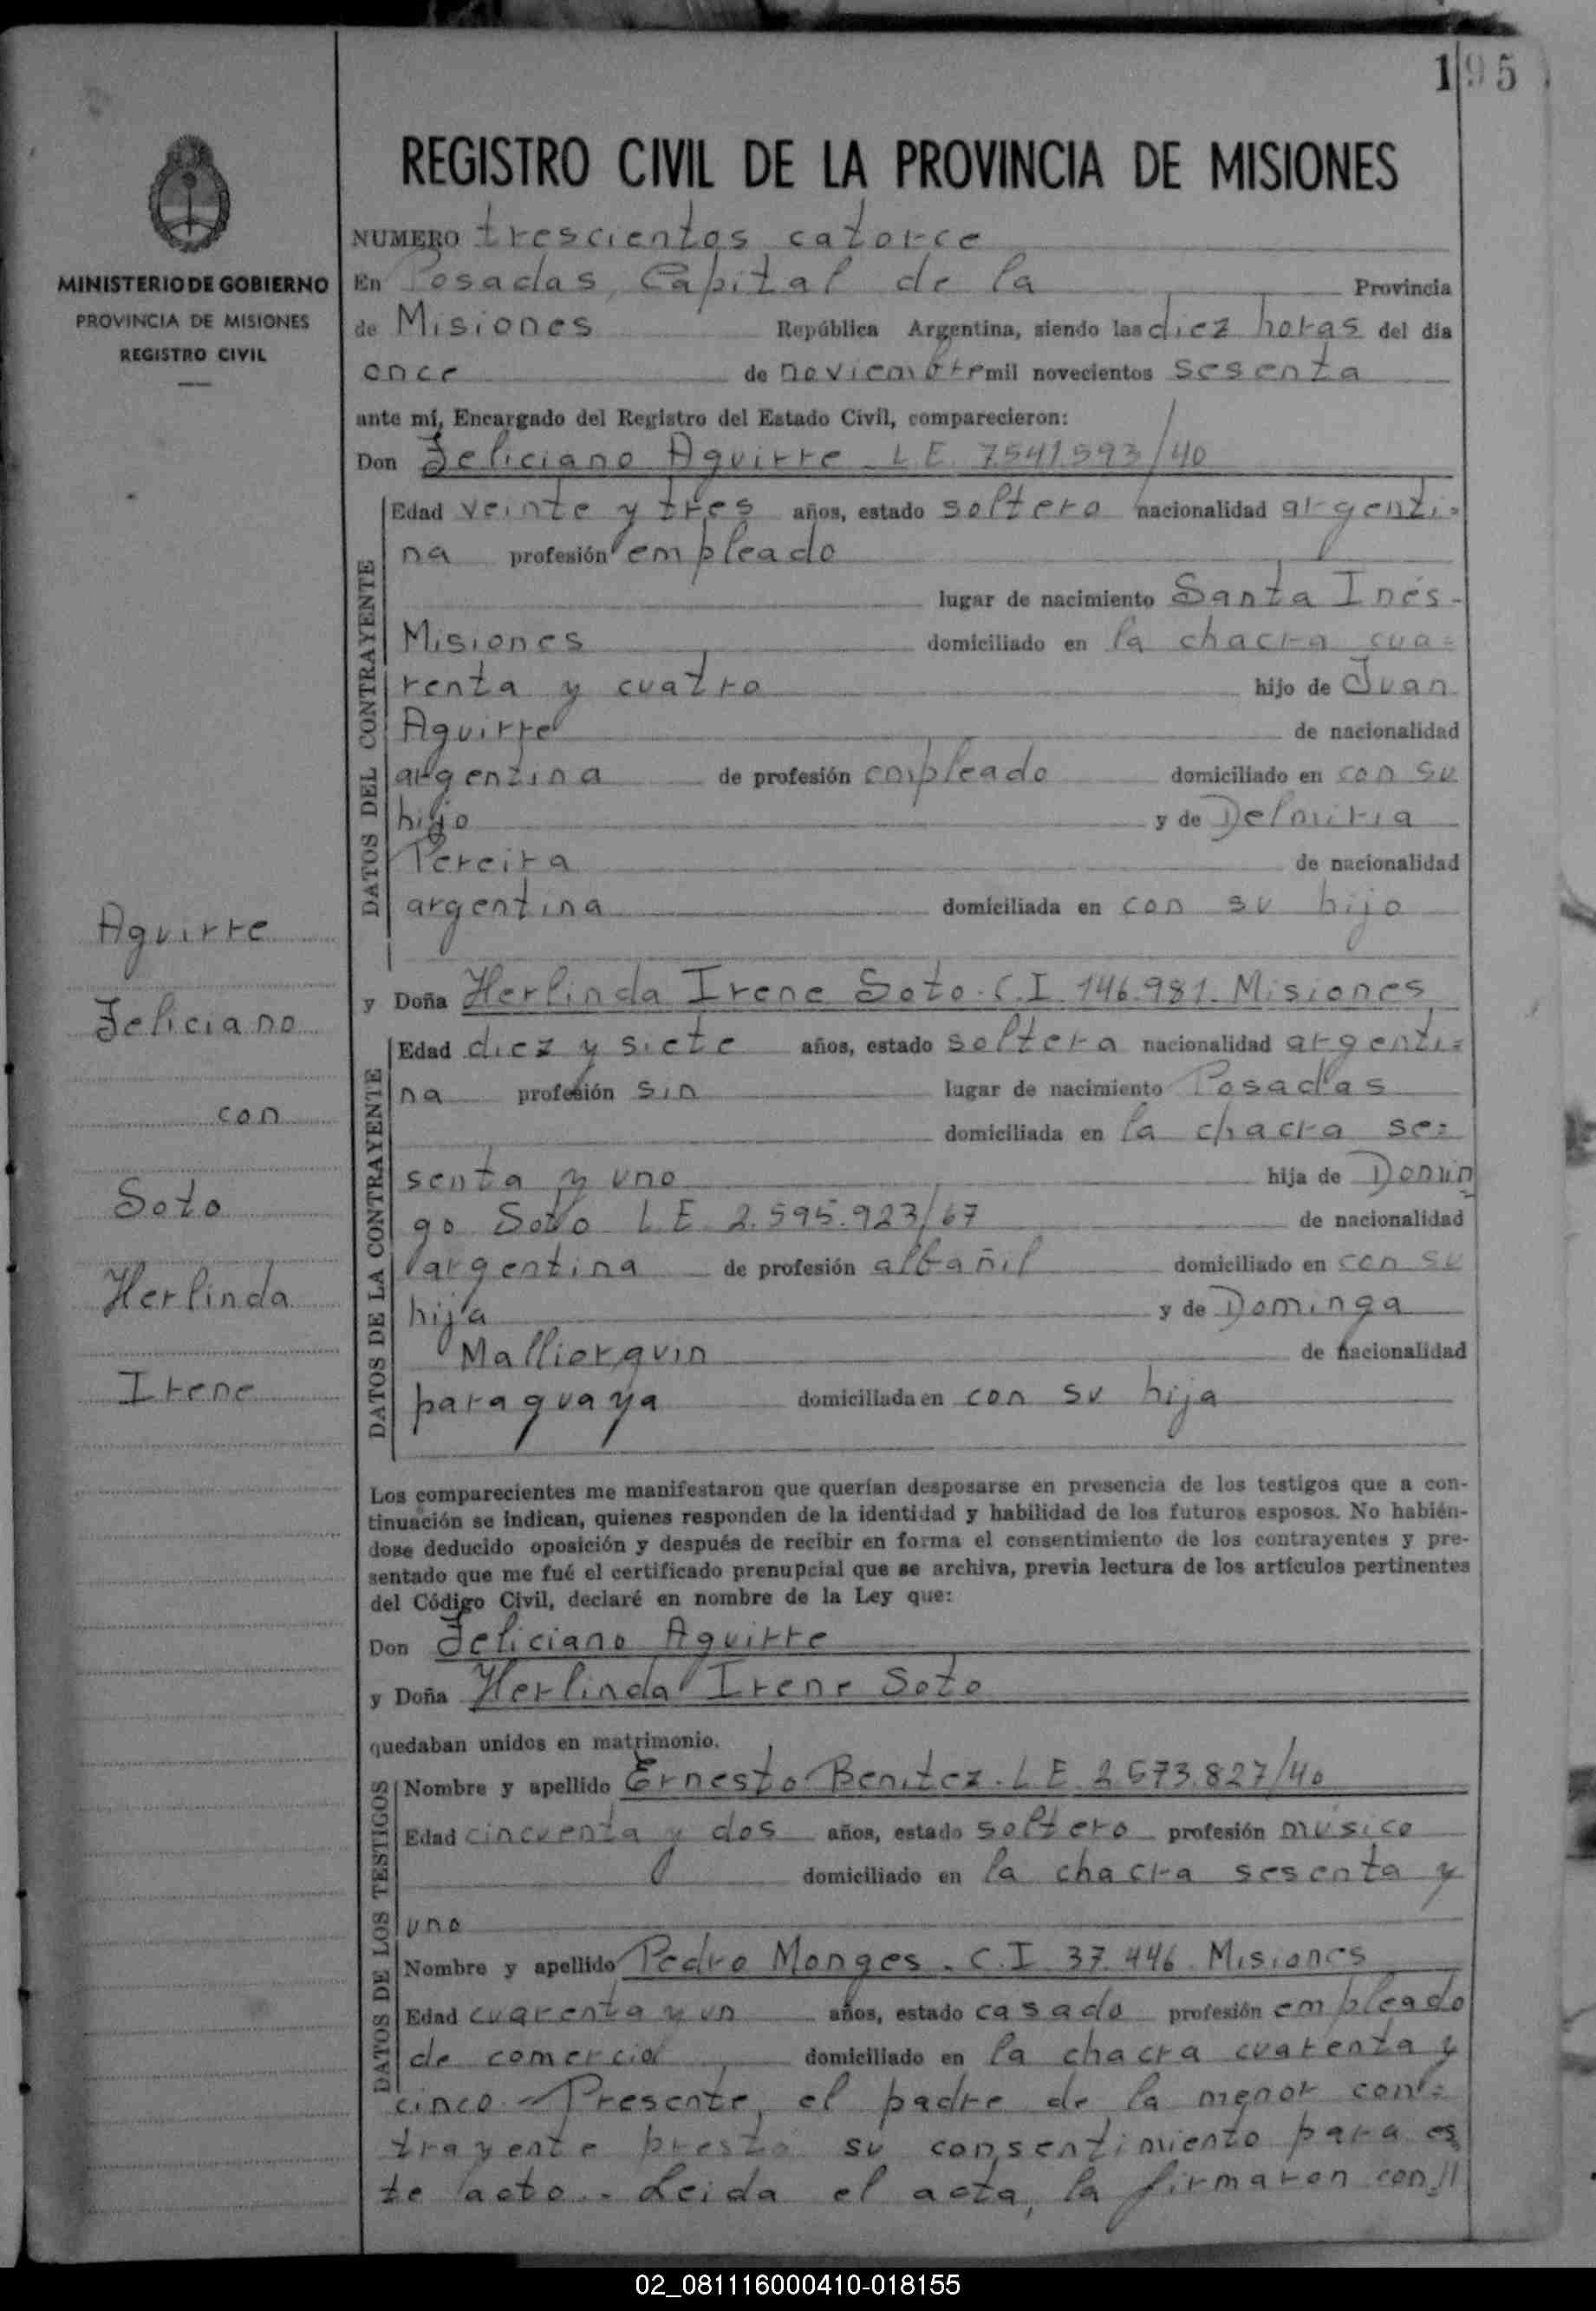 195
REGISTRO CIVIL DE LA PROVINCIA DE MISIONES
MINISTERIO DE GOBIERNO
PROVINCIA DE MISIONES
REGISTRO CIVIL
NUMERO trescientos catorce
En Posadas, Capital de la Provincia
de Misiones República Argentina, siendo las diez horas del dia
once de noviembre mil novecientos sesenta
ante mí, Encargado del Registro del Estado Civil, comparecieron:
Don Feliciano Aguirre L.E. 7.541.593/40
DATOS DEL CONTRAYENTE
Edad veinte y tres años, estado soltero nacionalidad argenti=
na profesión empleado
lugar de nacimiento Santa Inés-
Misiones domiciliado en la chacra cua=
renta y cuatro hijo de Juan
Aguirre de nacionalidad
argentina de profesión empleado domiciliado en con su
hijo y de Delmiria
Pereira de nacionalidad
argentina domiciliada en con su hijo
Aguirre
Feliciano
con
Soto
Herlinda
Irene
y Doña Herlinda Irene Soto. C.I. 146.981. Misiones
DATOS DE LA CONTRAYENTE
Edad diez y siete años, estado soltera nacionalidad argenti=
na profesión sin lugar de nacimiento Posadas
domiciliada en la chacra se=
senta y uno hija de Domin
go Soto L E 2.595.923/67 de nacionalidad
argentina de profesión albañil domiciliado en con su
hija y de Dominga
Malliorquin de nacionalidad
paraguaya domiciliada en con su hija
Los comparecientes me manifestaron que querían desposarse en presencia de los testigos que a con-
tinuación se indican, quienes responden de la identidad y habilidad de los futuros esposos. No habién-
dose deducido oposición y después de recibir en forma el consentimiento de los contrayentes y pre-
sentado que me fué el certificado prenupcial que se archiva, previa lectura de los artículos pertinentes
del Código Civil, declaré en nombre de la Ley que:
Don Feliciano Aguirre
y Doña Herlinda Irene Soto
quedaban unidos en matrimonio.
DATOS DE LOS TESTIGOS
Nombre y apellido Ernesto Benitez. L E 2.573.827/40
Edad cincuenta y dos años, estado soltero profesión músico
domiciliado en la chacra sesenta y
uno
Nombre y apellido Pedro Monges. C.I 37.446. Misiones
Edad cuarenta y un años, estado casado profesión empleado
de comercio domiciliado en la chacra cuarenta y
cinco.- Presente, el padre de la menor con=
trayente presta su consentimiento para es
te acto.- Leida el acta, la firmaron con//
02_081116000410-018155